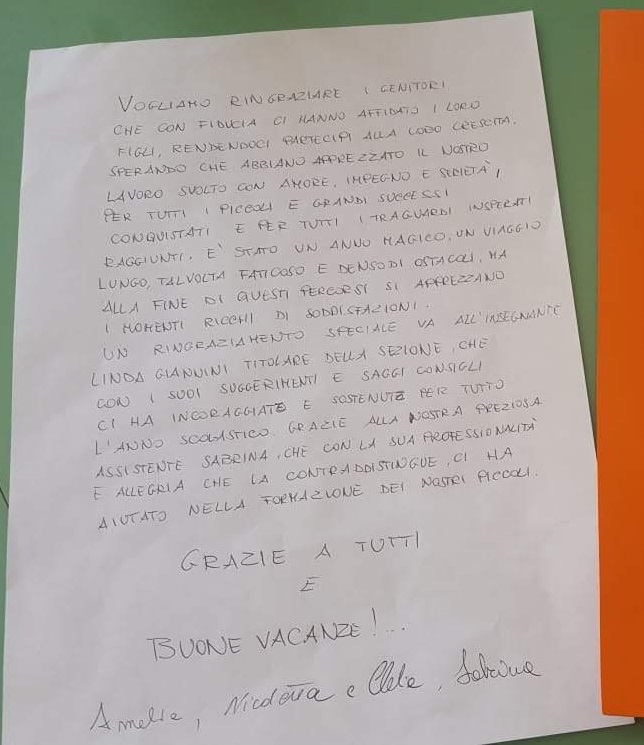 VOGLIAMO RINGRAZIARE I GENITORI
CHE CON FIDUCIA CI HANNO AFFIDATO I LORO
FIGLI, RENDENDOCI PARTECIPI ALLA LORO CRESCITA.
SPERANDO CHE ABBIANO APPREZZATO IL NOSTRO
LAVORO SVOLTO CON AMORE, IMPEGNO E SERIETÀ,
PER TUTTI I PICCOLI E GRANDI SUCCESSI
CONQUISTATI E PER TUTTI I TRAGUARDI INSPERATI
RAGGIUNTI. E' STATO UN ANNO MAGICO, UN VIAGGIO
LUNGO, TALVOLTA FATICOSO E DENSO DI OSTACOLI, MA
ALLA FINE DI QUESTI PERCORSI SI APPREZZANO
I MOMENTI RICCHI DI SODDISFAZIONI.
UN RINGRAZIAMENTO SPECIALE VA ALL'INSEGNANTE
LINDA GIANNINI TITOLARE DELLA SEZIONE, CHE
CON I SUOI SUGGERIMENTI E SAGGI CONSIGLI
CI HA INCORAGGIATE E SOSTENUTE PER TUTTO
L'ANNO SCOLASTICO. GRAZIE ALLA NOSTRA PREZIOSA
ASSISTENTE SABRINA, CHE CON LA SUA PROFESSIONALITÀ
E ALLEGRIA CHE LA CONTRADDISTINGUE, CI HA
AIUTATO NELLA FORMAZIONE DEI NOSTRI PICCOLI.
GRAZIE A TUTTI
E
BUONE VACANZE!...
Amelia, Nicoletta e Clelia, Sabrina